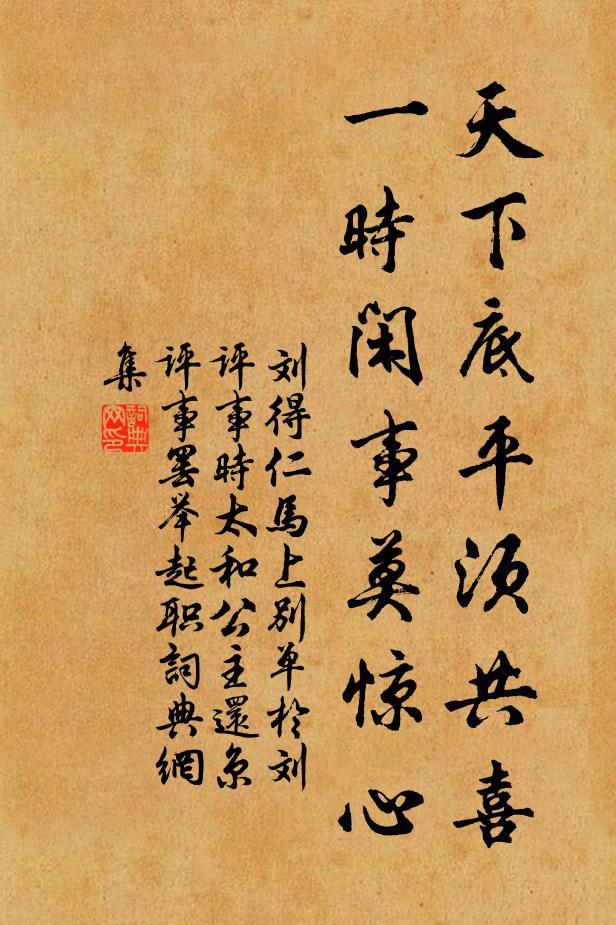 天下底平须共喜
一時閑事莫惊心
刘得仁馬上别单於刘
评事時太和公主還京
评事罢举起职詞典網
集
詞典網印